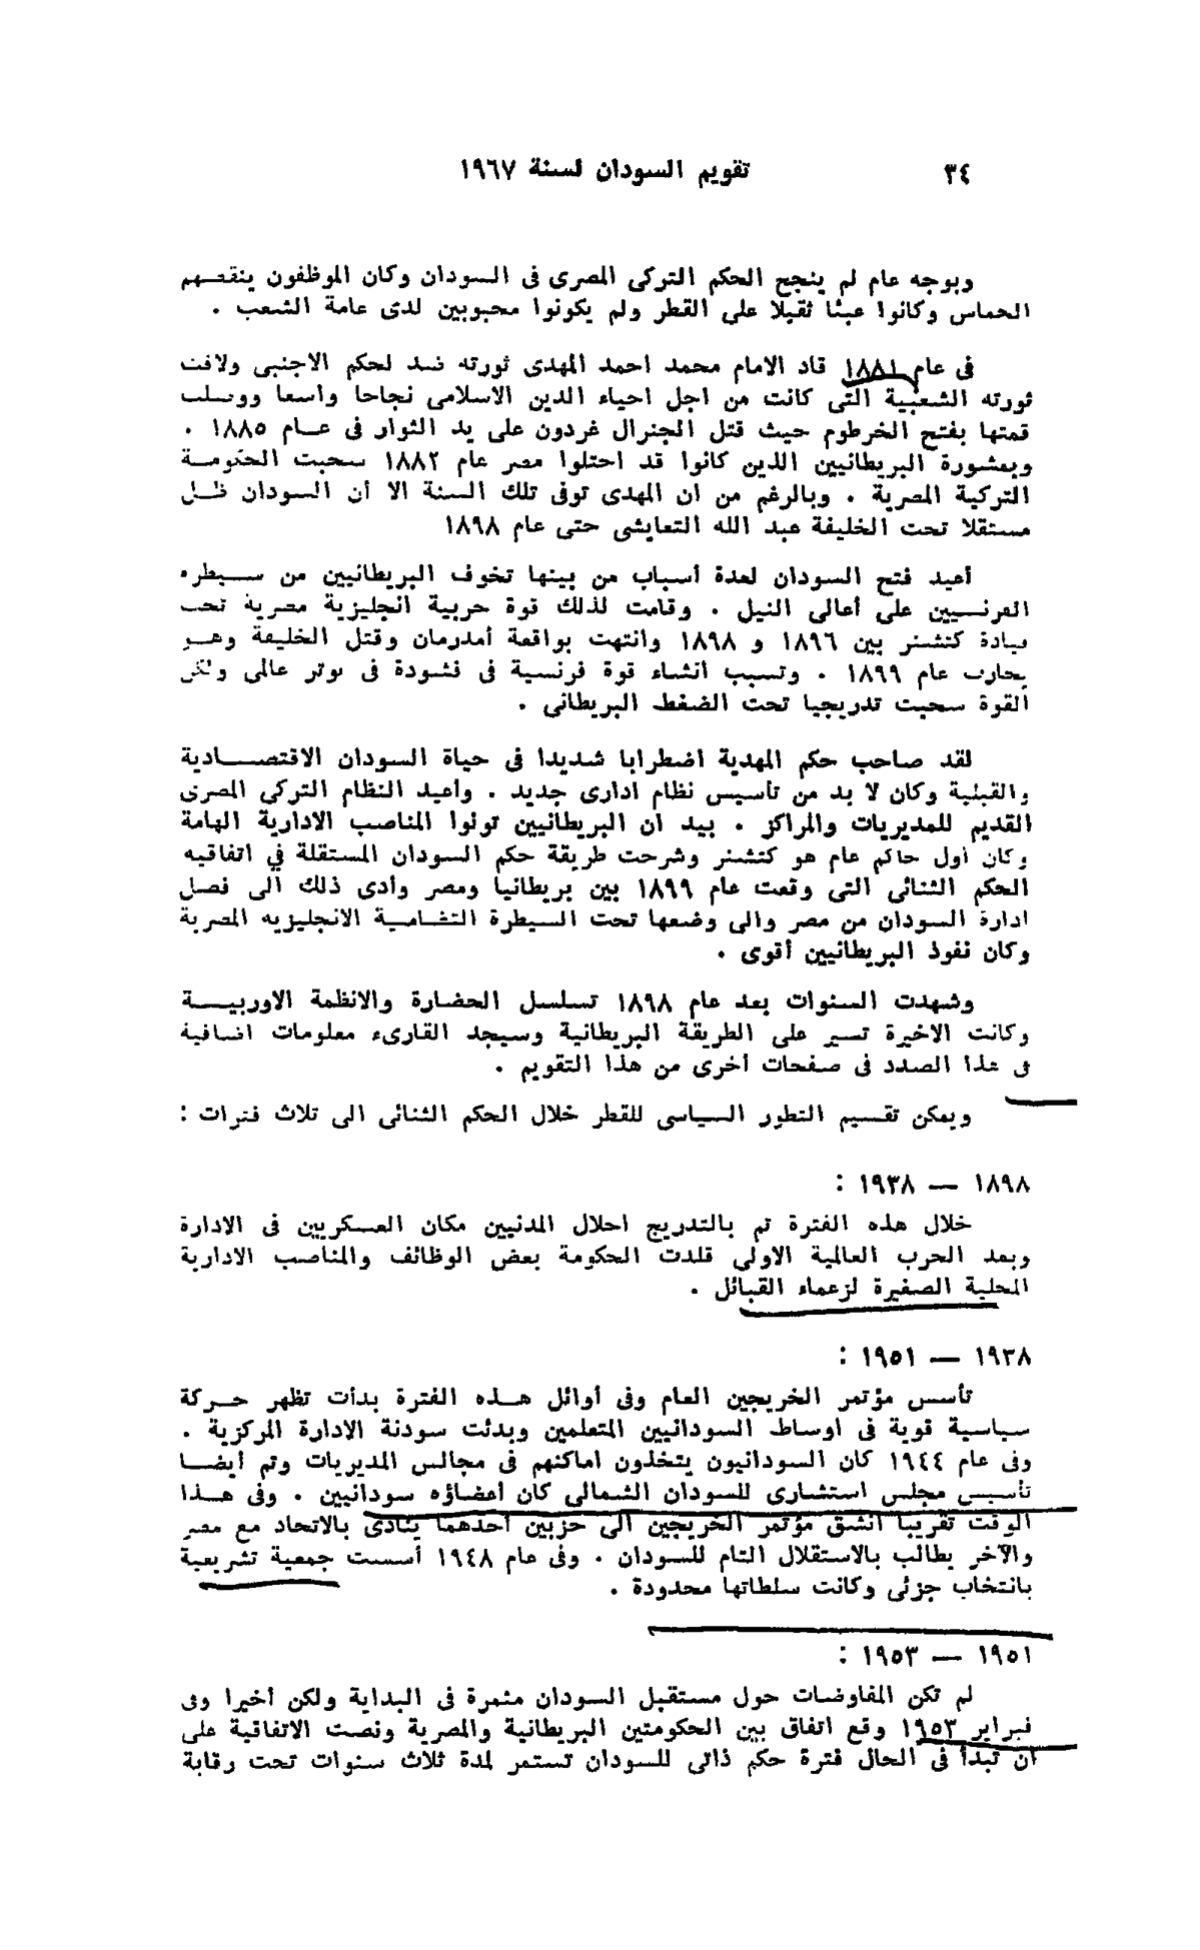 ٣٤ تقويم السودان لسنة ١٩٦٧
وبوجه عام لم ينجح الحكم التركى المصرى فى السودان وكان الموظفون ينقصهم
الحماس وكانوا عبئا ثقيلا على القطر ولم يكونوا محبوبين لدى عامة الشعب .
فى عام ١٨٨١ قاد الامام محمد احمد المهدى ثورته ضد لحكم الاجنبى ولاقت
ثورته الشعبية التى كانت من اجل احياء الدين الاسلامى نجاحا واسعا ووصلت
قمتها بفتح الخرطوم حيث قتل الجنرال غردون على يد الثوار فى عام ١٨٨٥ .
وبمشورة البريطانيين الذين كانوا قد احتلوا مصر عام ١٨٨٢ سحبت الحكومة
التركية المصرية . وبالرغم من ان المهدى توفى تلك السنة الا أن السودان ظل
مستقلا تحت الخليفة عبد الله التعايشى حتى عام ١٨٩٨
أعيد فتح السودان لعدة أسباب من بينها تخوف البريطانيين من سيطره
الفرنسيين على أعالى النيل . وقامت لذلك قوة حربية انجليزية مصرية تحت
قيادة كتشنر بين ١٨٩٦ و ١٨٩٨ وانتهت بواقعة أمدرمان وقتل الخليفة وهو
يحارب عام ١٨٩٩ . وتسبب انشاء قوة فرنسية فى فشودة فى توتر عالمى ولكن
القوة سحبت تدريجيا تحت الضغط البريطانى .
لقد صاحب حكم المهدية اضطرابا شديدا فى حياة السودان الاقتصادية
والقبلية وكان لا بد من تأسيس نظام ادارى جديد . وأعيد النظام التركى المصرى
القديم للمديريات والمراكز . بيد ان البريطانيين تولوا المناصب الادارية الهامة
وكان أول حاكم عام هو كتشنر وشرحت طريقة حكم السودان المستقلة في اتفاقيه
الحكم الثنائى التى وقعت عام ١٨٩٩ بين بريطانيا ومصر وأدى ذلك الى فصل
ادارة السودان من مصر والى وضعها تحت السيطرة التضامية الانجليزيه المصرية
وكان نفوذ البريطانيين أقوى .
وشهدت السنوات بعد عام ١٨٩٨ تسلسل الحضارة والانظمة الاوربية
وكانت الاخيرة تسير على الطريقة البريطانية وسيجد القارىء معلومات اضافية
فى هذا الصدد فى صفحات أخرى من هذا التقويم .
ويمكن تقسيم التطور السياسى للقطر خلال الحكم الثنائى الى ثلاث فترات :
١٨٩٨ — ١٩٣٨ :
خلال هذه الفترة تم بالتدريج احلال المدنيين مكان العسكريين فى الادارة
وبعد الحرب العالمية الاولى قلدت الحكومة بعض الوظائف والمناصب الادارية
المحلية الصغيرة لزعماء القبائل .
١٩٣٨ — ١٩٥١ :
تأسس مؤتمر الخريجين العام وفى أوائل هذه الفترة بدأت تظهر حركة
سياسية قوية فى اوساط السودانيين المتعلمين وبدئت سودنة الادارة المركزية .
وفى عام ١٩٤٤ كان السودانيون يتخذون اماكنهم فى مجالس المديريات وتم ايضا
تأسيس مجلس استشارى للسودان الشمالى كان أعضاؤه سودانيين . وفى هذا
الوقت تقريبا انشق مؤتمر الخريجين الى حزبين احدهما ينادى بالاتحاد مع مصر
والآخر يطالب بالاستقلال التام للسودان . وفى عام ١٩٤٨ أسست جمعية تشريعية
بانتخاب جزئى وكانت سلطاتها محدودة .
١٩٥١ — ١٩٥٣ :
لم تكن المفاوضات حول مستقبل السودان مثمرة فى البداية ولكن أخيرا وفى
فبراير ١٩٥٣ وقع اتفاق بين الحكومتين البريطانية والمصرية ونصت الاتفاقية على
أن تبدأ فى الحال فترة حكم ذاتى للسودان تستمر لمدة ثلاث سنوات تحت رقابة